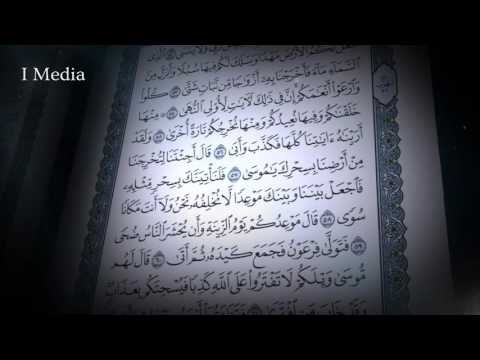 I Media
جَعَلَ لَكُمُ ٱلْأَرْضَ مَهْدًا وَسَلَكَ لَكُمْ فِيهَا سُبُلًا وَأَنزَلَ مِنَ
ٱلسَّمَآءِ مَآءً فَأَخْرَجْنَا بِهِۦٓ أَزْوَٰجًا مِّن نَّبَاتٍ شَتَّىٰ ٥٣ كُلُوا۟
وَٱرْعَوْا۟ أَنْعَٰمَكُمْ إِنَّ فِى ذَٰلِكَ لَءَايَٰتٍ لِّأُو۟لِى ٱلنُّهَىٰ ٥٤ مِنْهَا
خَلَقْنَٰكُمْ وَفِيهَا نُعِيدُكُمْ وَمِنْهَا نُخْرِجُكُمْ تَارَةً أُخْرَىٰ ٥٥ وَلَقَدْ
أَرَيْنَٰهُ ءَايَٰتِنَا كُلَّهَا فَكَذَّبَ وَأَبَىٰ ٥٦ قَالَ أَجِئْتَنَا لِتُخْرِجَنَا
مِنْ أَرْضِنَا بِسِحْرِكَ يَٰمُوسَىٰ ٥٧ فَلَنَأْتِيَنَّكَ بِسِحْرٍ مِّثْلِهِۦ
فَٱجْعَلْ بَيْنَنَا وَبَيْنَكَ مَوْعِدًا لَّا نُخْلِفُهُۥ نَحْنُ وَلَآ أَنتَ مَكَانًا
سُوًى ٥٨ قَالَ مَوْعِدُكُمْ يَوْمُ ٱلزِّينَةِ وَأَن يُحْشَرَ ٱلنَّاسُ ضُحًى
٥٩ فَتَوَلَّىٰ فِرْعَوْنُ فَجَمَعَ كَيْدَهُۥ ثُمَّ أَتَىٰ ٦٠ قَالَ لَهُم
مُّوسَىٰ وَيْلَكُمْ لَا تَفْتَرُوا۟ عَلَى ٱللَّهِ كَذِبًا فَيُسْحِتَكُم بِعَذَابٍ
وَقَدْ خَابَ مَنِ ٱفْتَرَىٰ